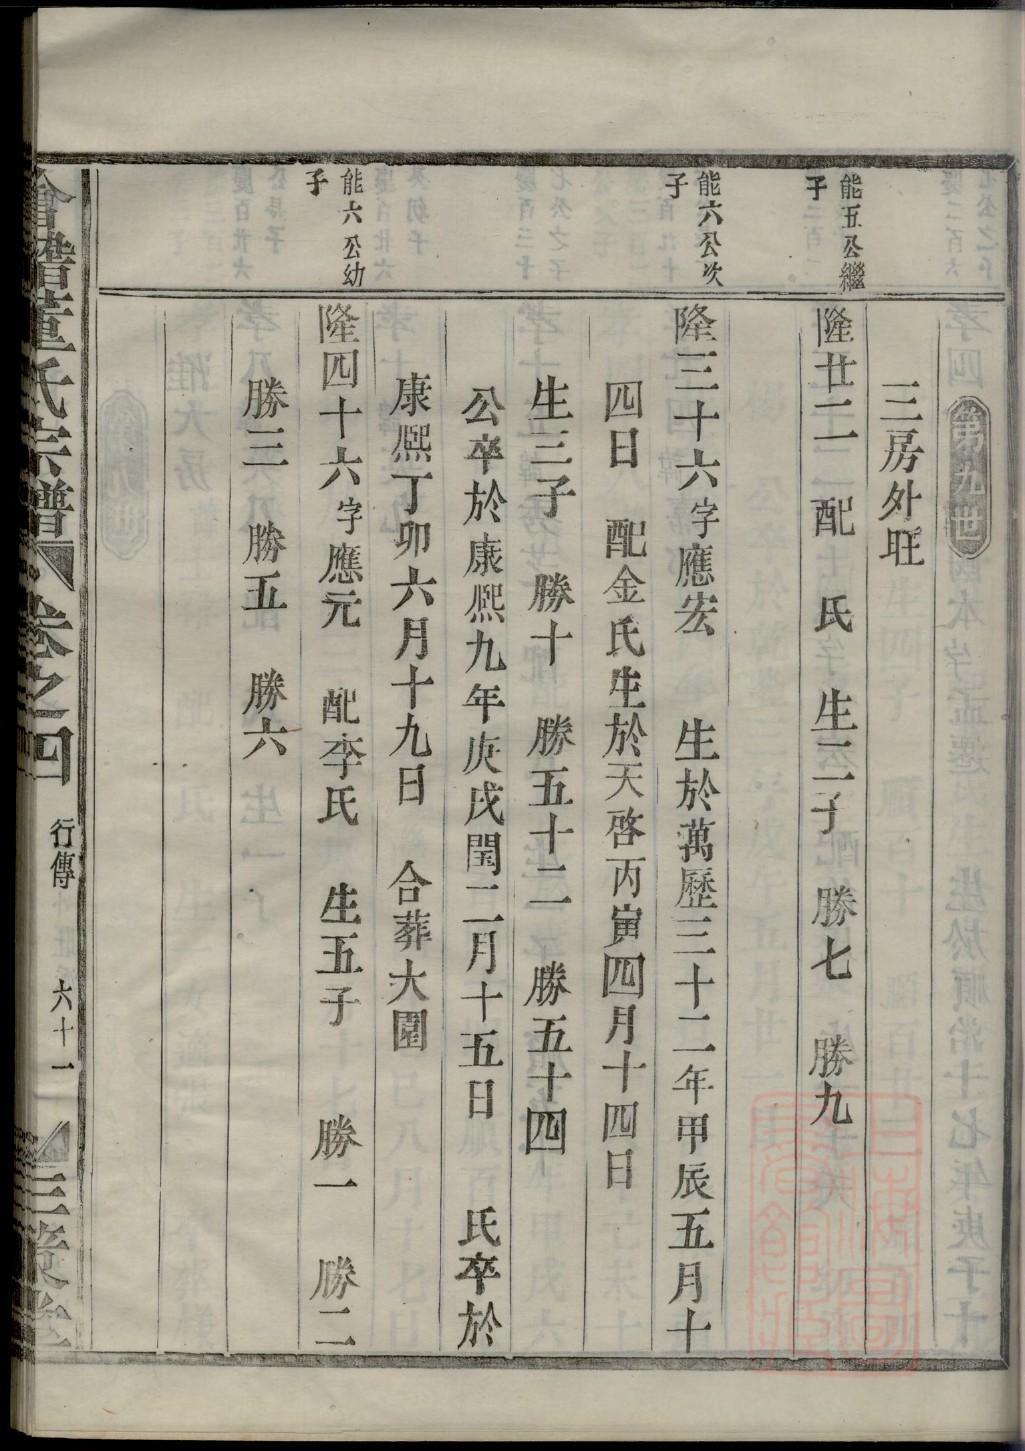 第九世
三房外旺
能五公繼子
隆廿二　配　氏　生二子　勝七　勝九
能六公次子
隆三十六字應宏　生於萬歷三十二年甲辰五月十
四日　配金氏生於天啓丙寅四月十四日
生三子　勝十　勝五十二　勝五十四
公卒於康熙九年庚戌閏二月十五日　氏卒於
康熙丁卯六月十九日　合葬大園
能六公幼子
隆四十六字應元　配李氏　生五子　勝一　勝二
勝三　勝五　勝六
會稽董氏宗譜　卷之四　行傳　六十一　三策堂